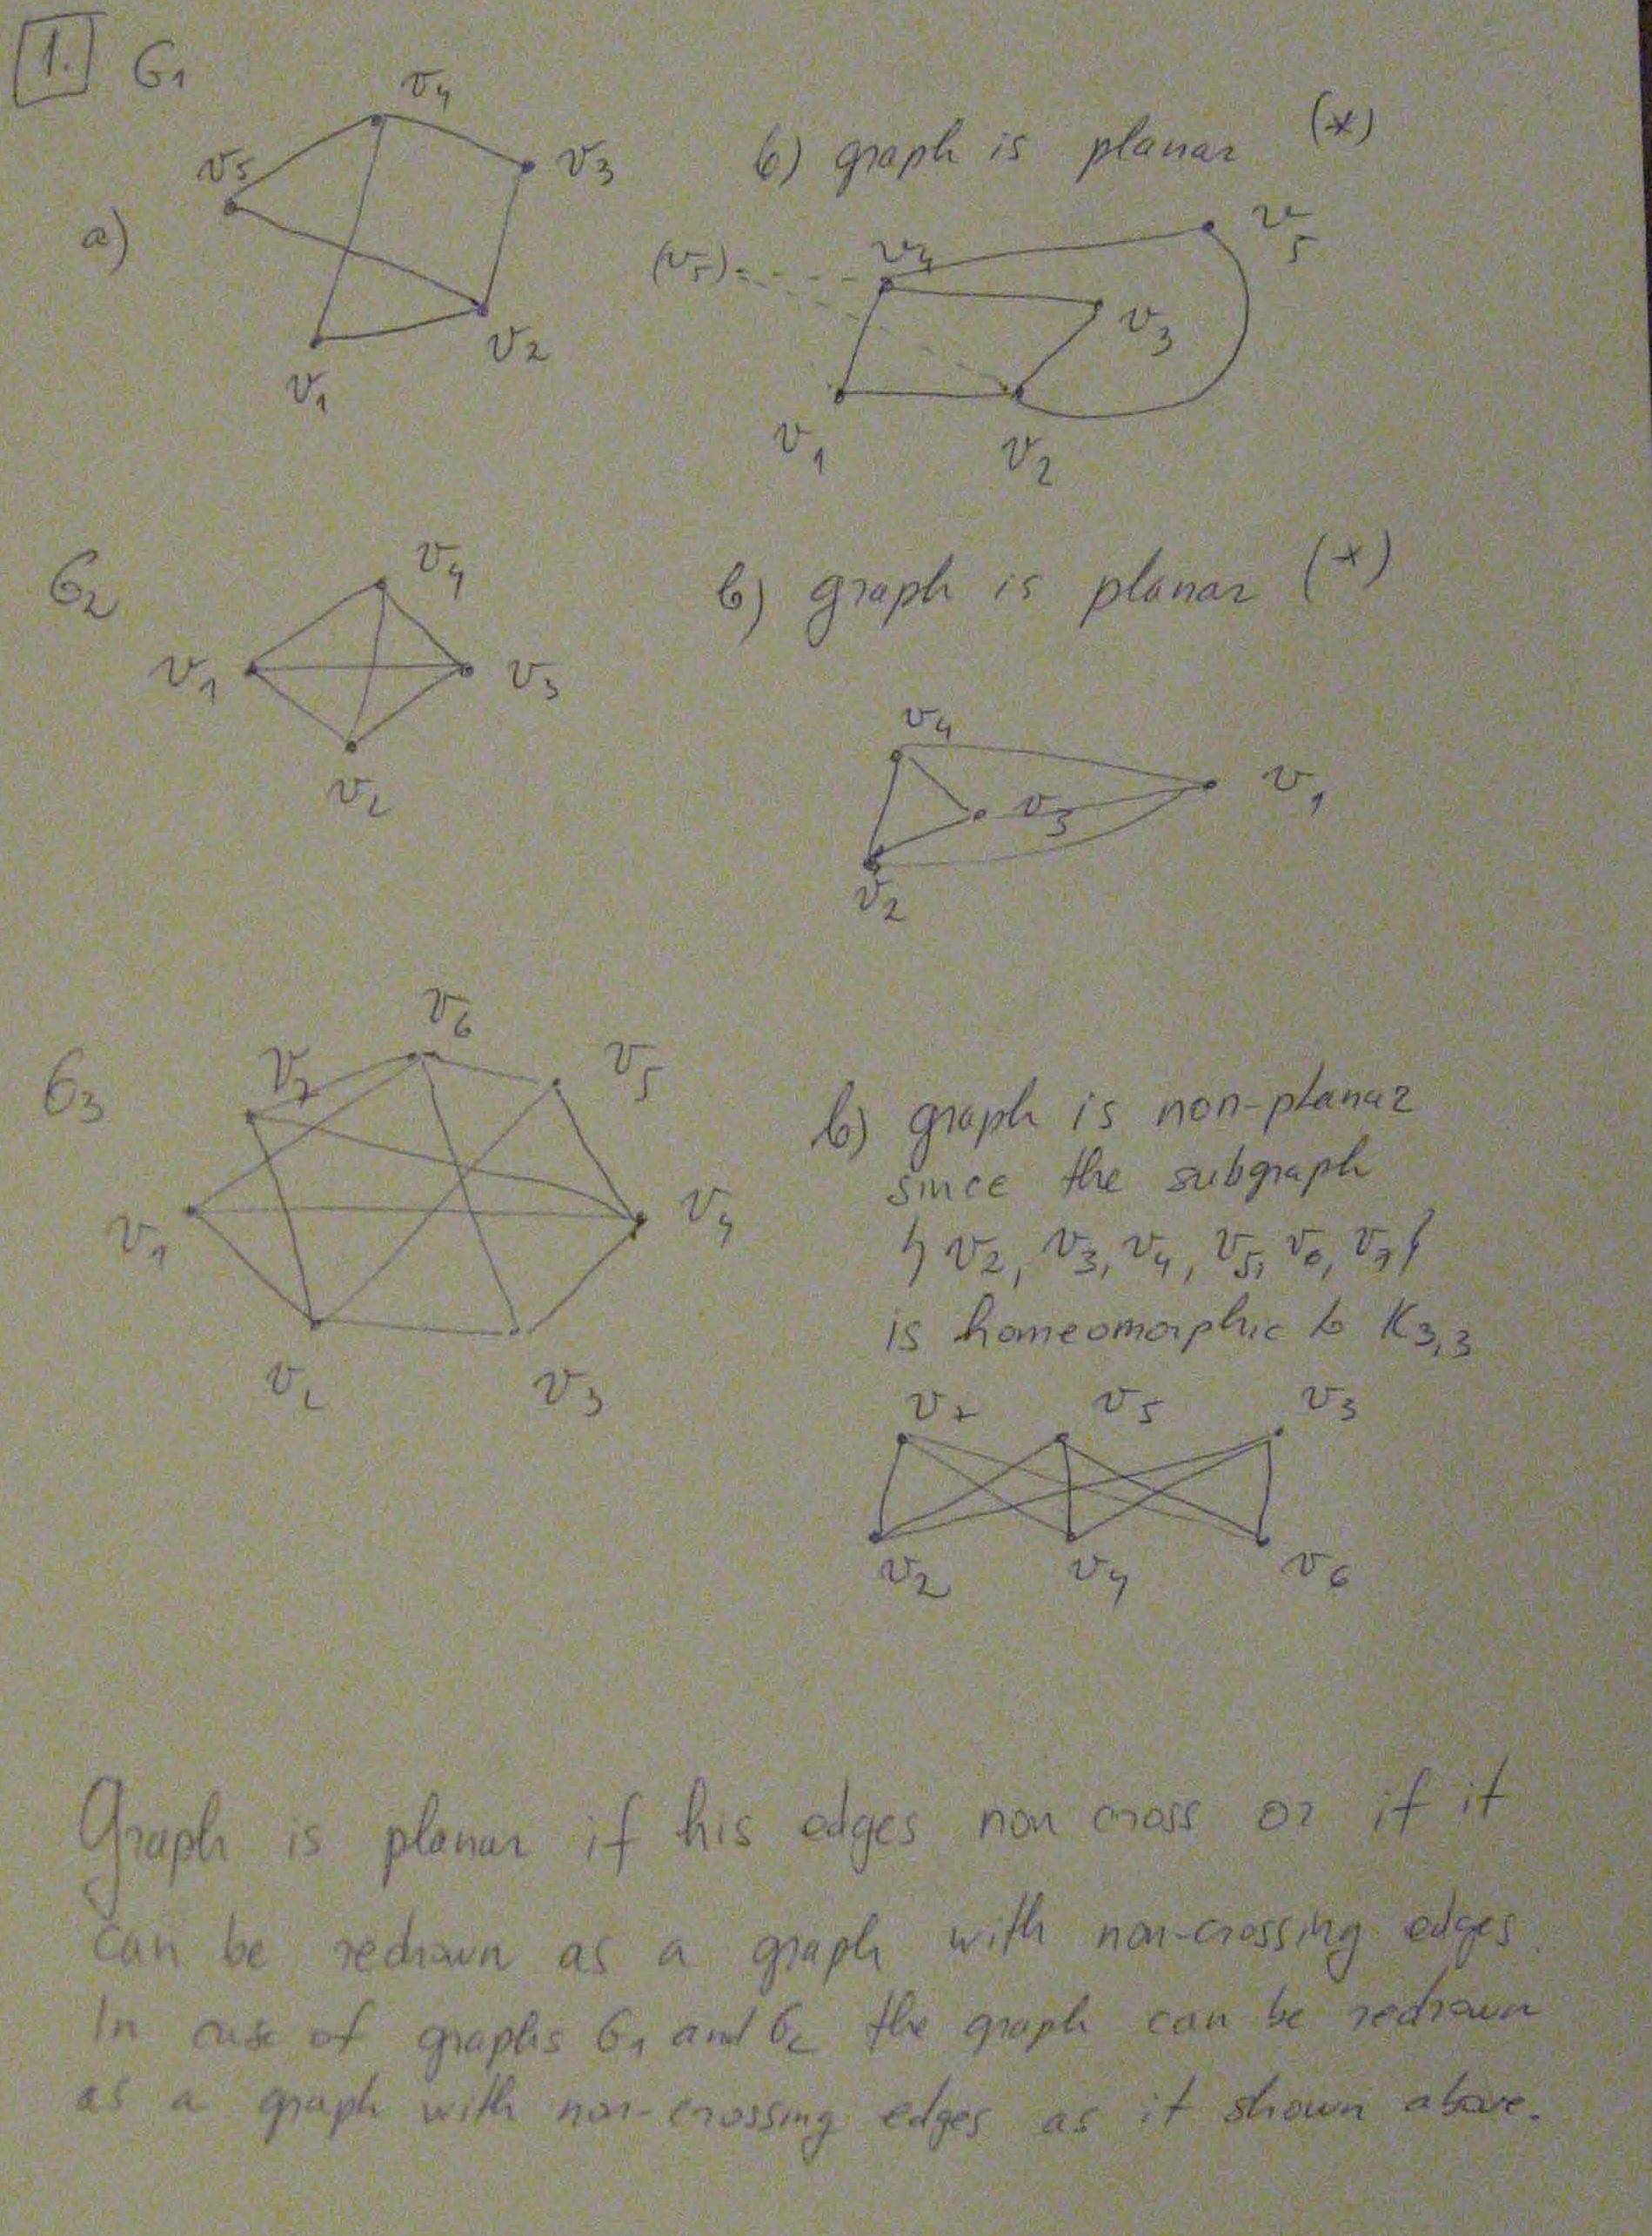 1. G₁
v₄
v₅
v₃
a)
v₂
v₁
b) graph is planar (*)
v₅
(v₅)
v₄
v₃
v₁
v₂
G₂
v₄
v₁
v₃
v₂
b) graph is planar (*)
v₄
v₃
v₁
v₂
G₃
v₆
v₇
v₅
v₁
v₄
v₂
v₃
b) graph is non-planar
since the subgraph
{v₂, v₃, v₄, v₅, v₆, v₇}
is homeomorphic to K₃,₃
v₇ v₅ v₃
v₂ v₄ v₆
Graph is planar if his edges non cross or if it
can be redrawn as a graph with non-crossing edges.
In case of graphs G₁ and G₂ the graph can be redrawn
as a graph with non-crossing edges as it shown above.